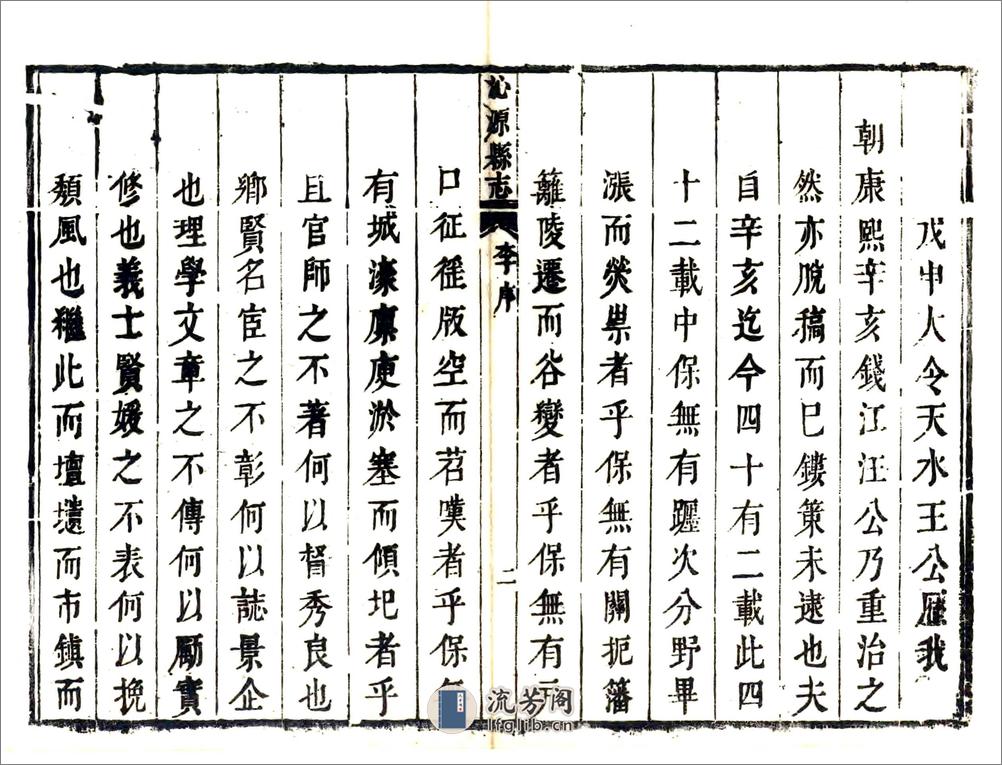 戊申大令天水王公歷我
朝康熙辛亥錢江汪公乃重治之
然亦脫稿而已鏤策未逮也夫
自辛亥迄今四十有二載此四
十二載中保無有躔次分野畢
漲而熒祟者乎保無有關扼藩
籬陵遷而谷變者乎保無有
沁源縣志 李序 二
口征徭版空而苕嘆者乎保
有城濠廩庾淤塞而傾圯者乎
且官師之不著何以督秀良也
鄉賢名宦之不彰何以誌景企
也理學文章之不傳何以勵實
修也義士賢媛之不表何以挽
頹風也繼此而壇壝而市鎮而
流芳阁
lfglib.cn